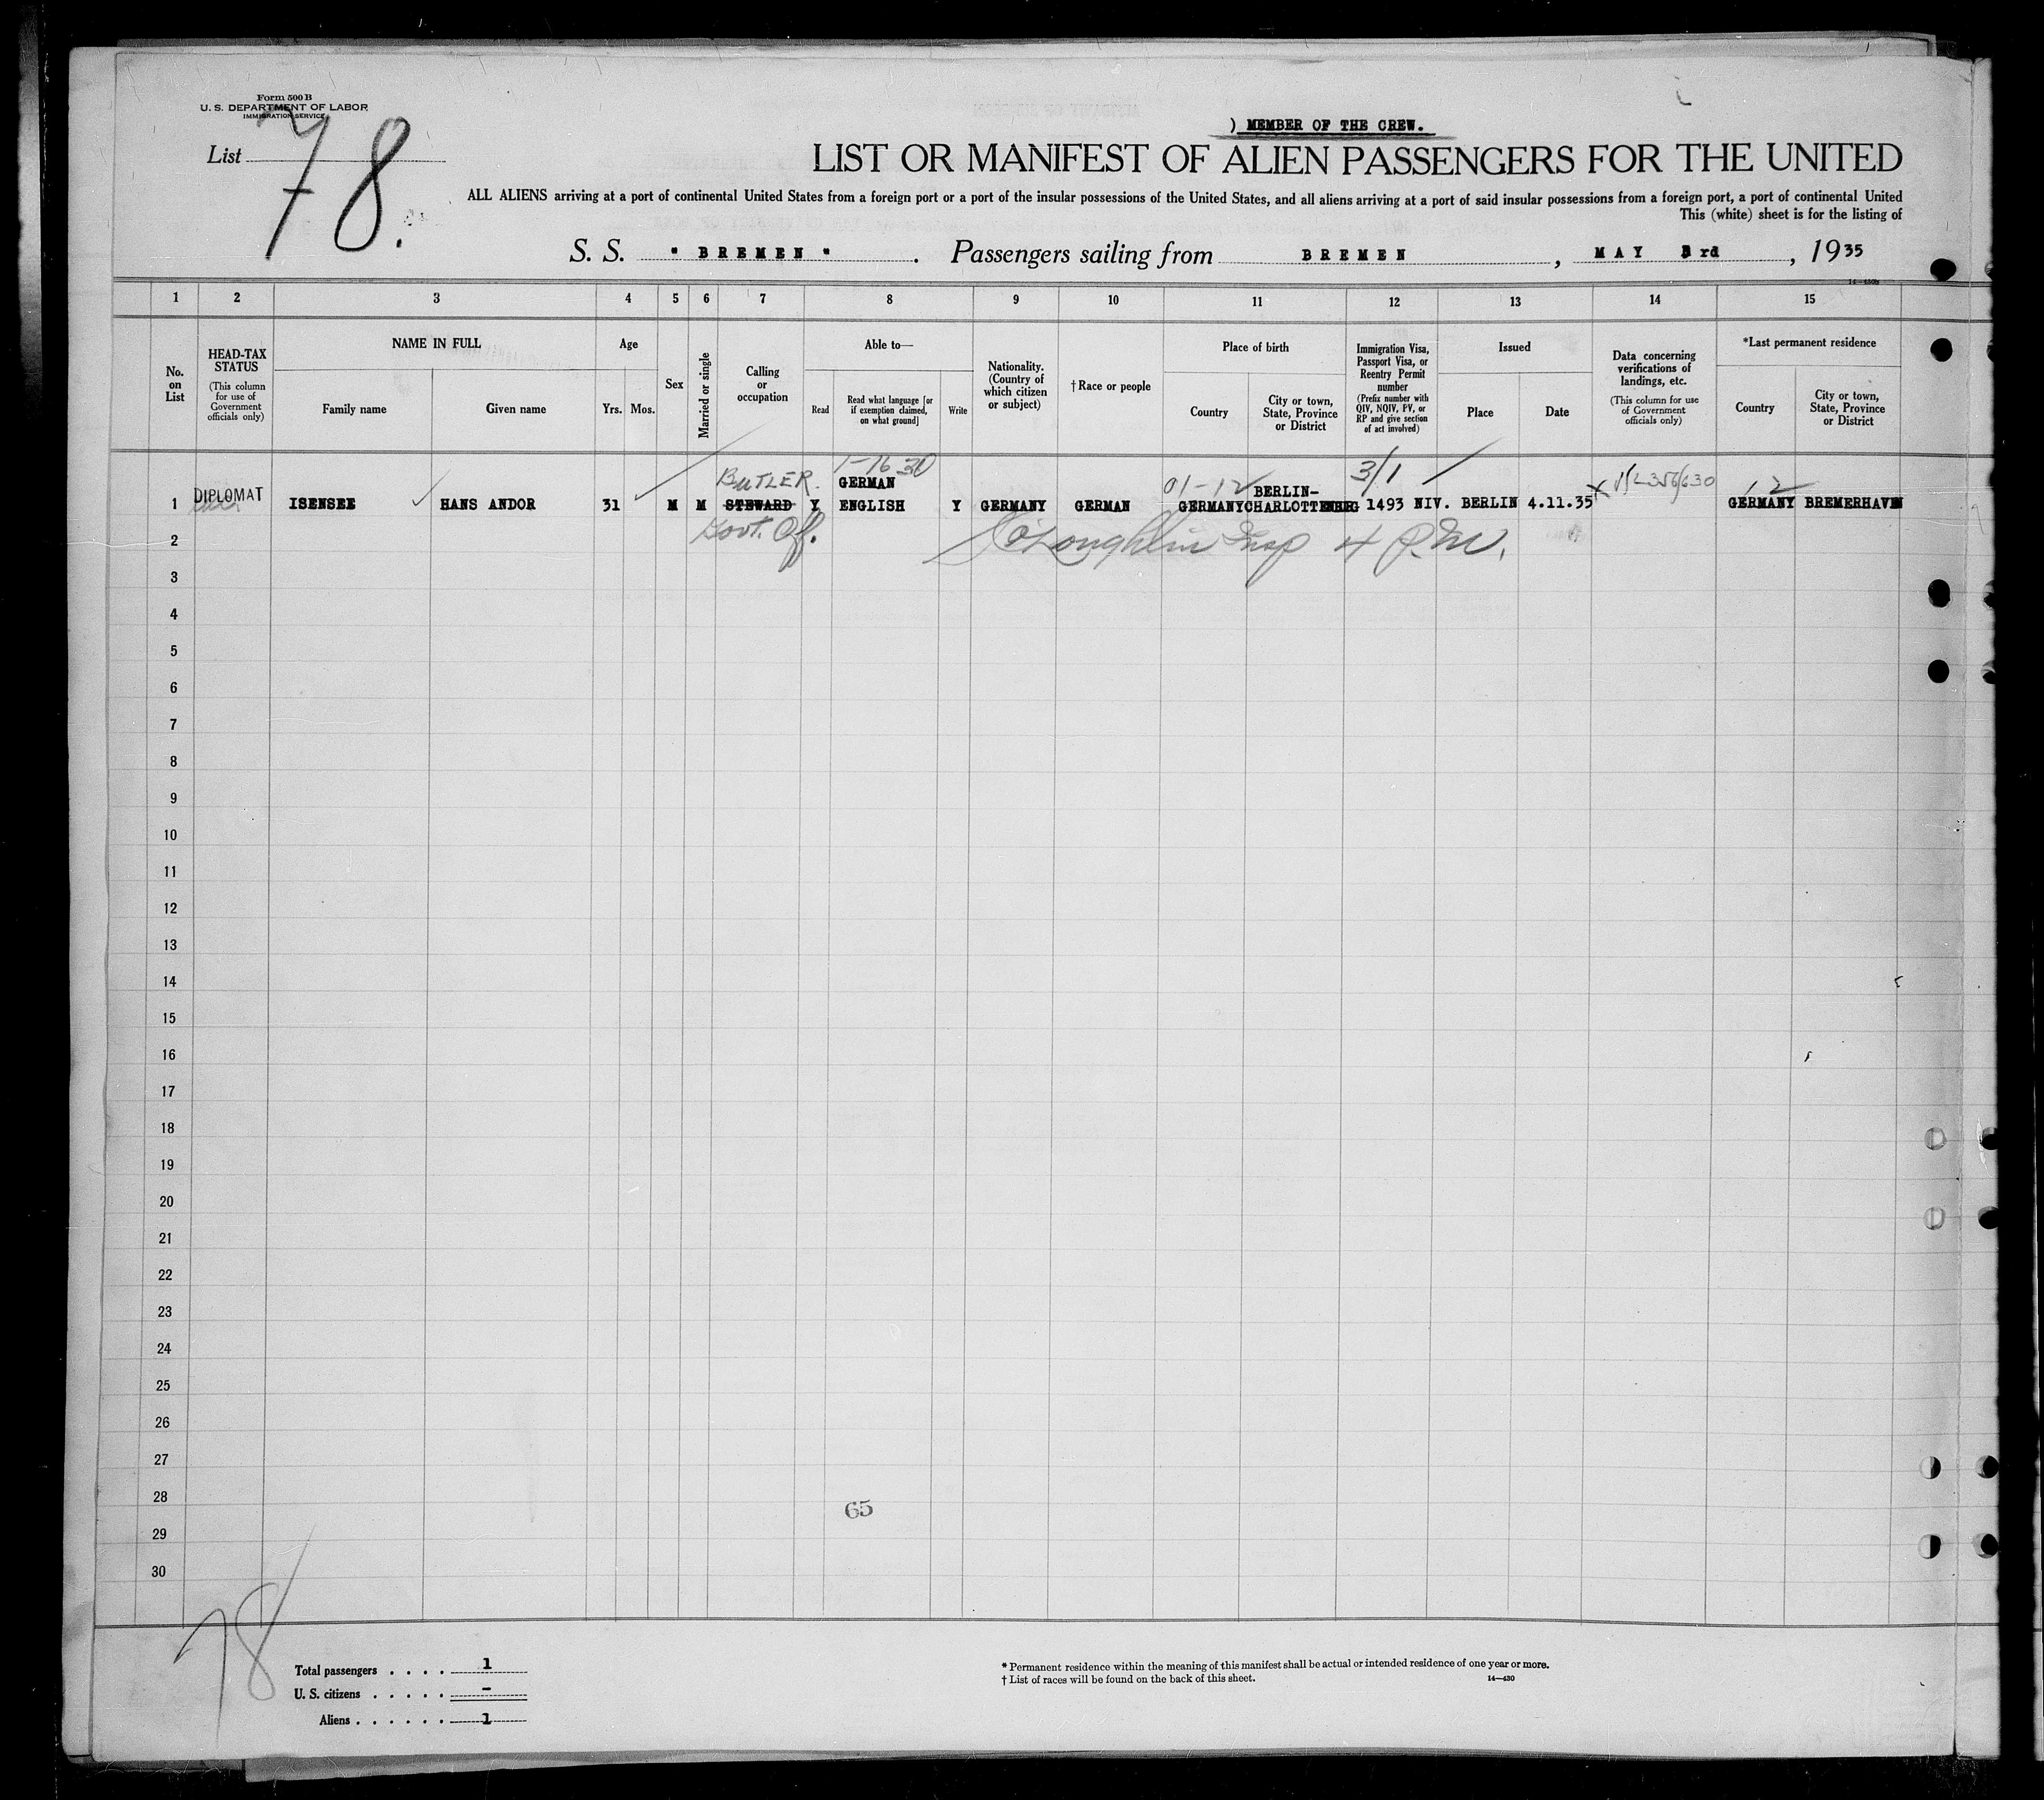 Form 500 B
U. S. DEPARTMENT OF LABOR
IMMIGRATION SERVICE
List 78.
) MEMBER OF THE CREW.
LIST OR MANIFEST OF ALIEN PASSENGERS FOR THE UNITED
ALL ALIENS arriving at a port of continental United States from a foreign port or a port of the insular possessions of the United States, and all aliens arriving at a port of said insular possessions from a foreign port, a port of continental United
This (white) sheet is for the listing of
S. S. " BREMEN " . Passengers sailing from BREMEN , MAY 3rd , 1935
14—430b
1 2 3 4 5 6 7 8 9 10 11 12 13 14 15
No. on List
HEAD-TAX STATUS
(This column for use of Government officials only)
NAME IN FULL
Family name
Given name
Age
Yrs. Mos.
Sex
Married or single
Calling or occupation
Able to—
Read
Read what language [or if exemption claimed, on what ground]
Write
Nationality. (Country of which citizen or subject)
† Race or people
Place of birth
Country
City or town, State, Province or District
Immigration Visa, Passport Visa, or Reentry Permit number
(Prefix number with QIV, NQIV, PV, or RP and give section of act involved)
Issued
Place
Date
Data concerning verifications of landings, etc.
(This column for use of Government officials only)
*Last permanent residence
Country
City or town, State, Province or District
BUTLER. 1-16 30 GERMAN 01-12 BERLIN- 3/1
1 DIPLOMAT ISENSEE HANS ANDOR 31 M M STEWARD Y ENGLISH Y GERMANY GERMAN GERMANY CHARLOTTENBURG 1493 NIV. BERLIN 4.11.35 12 GERMANY BREMERHAVEN
Govt. Off. O'Loughlin Insp
2
3
4
5
6
7
8
9
10
11
12
13
14
15
16
17
18
19
20
21
22
23
24
25
26
27
28
65
29
30
78
Total passengers . . . . 1
U. S. citizens . . . . . -
Aliens . . . . . . 1
* Permanent residence within the meaning of this manifest shall be actual or intended residence of one year or more.
† List of races will be found on the back of this sheet.
14—430